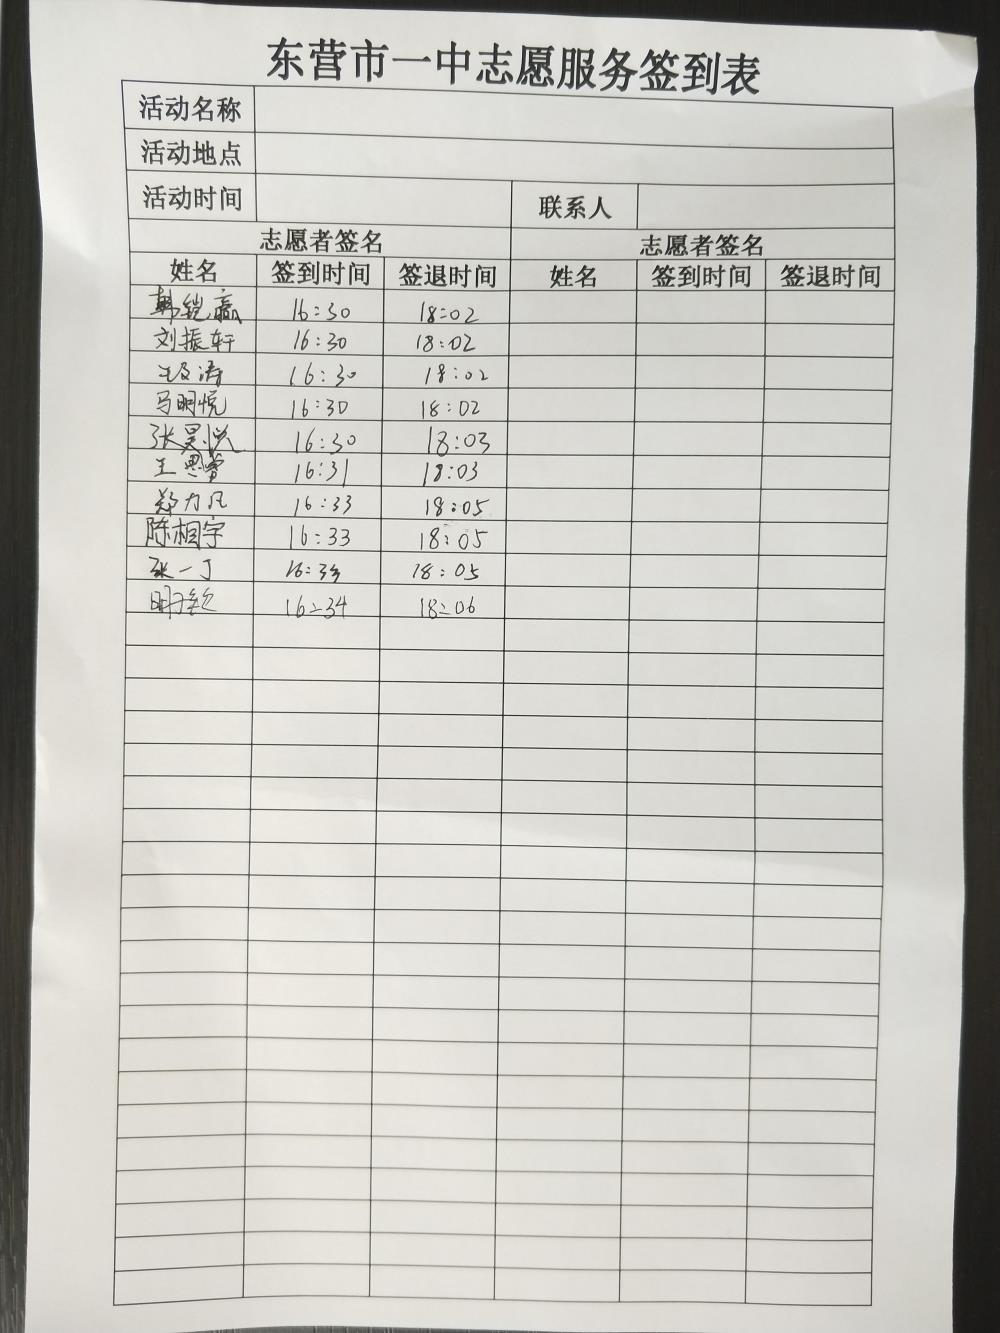 东营市一中志愿服务签到表
活动名称
活动地点
活动时间 联系人
志愿者签名 志愿者签名
姓名 签到时间 签退时间 姓名 签到时间 签退时间
韩铠赢 16:30 18:02
刘振轩 16:30 18:02
16:30 18:02
马明悦 16:30 18:02
张昊悦 16:30 18:03
王思 16:31 18:03
郑力凡 16:33 18:05
陈相宇 16:33 18:05
张一丁 16:33 18:05
16:34 18:06